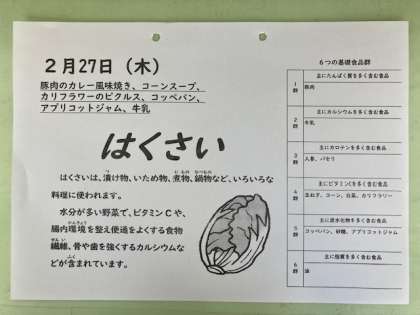 2月27日（木）
豚肉のカレー風味焼き、コーンスープ、
カリフラワーのピクルス、コッペパン、
アプリコットジャム、牛乳
はくさい
はくさいは、漬け物、いため物、煮物、鍋物など、いろいろな
料理に使われます。
水分が多い野菜で、ビタミンCや、
腸内環境を整え便通をよくする食物
繊維、骨や歯を強くするカルシウムな
どが含まれています。
6つの基礎食品群
1群
主にたんぱく質を多く含む食品
豚肉
2群
主にカルシウムを多く含む食品
牛乳
3群
主にカロテンを多く含む食品
人参、パセリ
4群
主にビタミンCを多く含む食品
玉ねぎ、コーン、白菜、カリフラワー
5群
主に炭水化物を多く含む食品
コッペパン、砂糖、アプリコットジャム
6群
主に脂質を多く含む食品
油